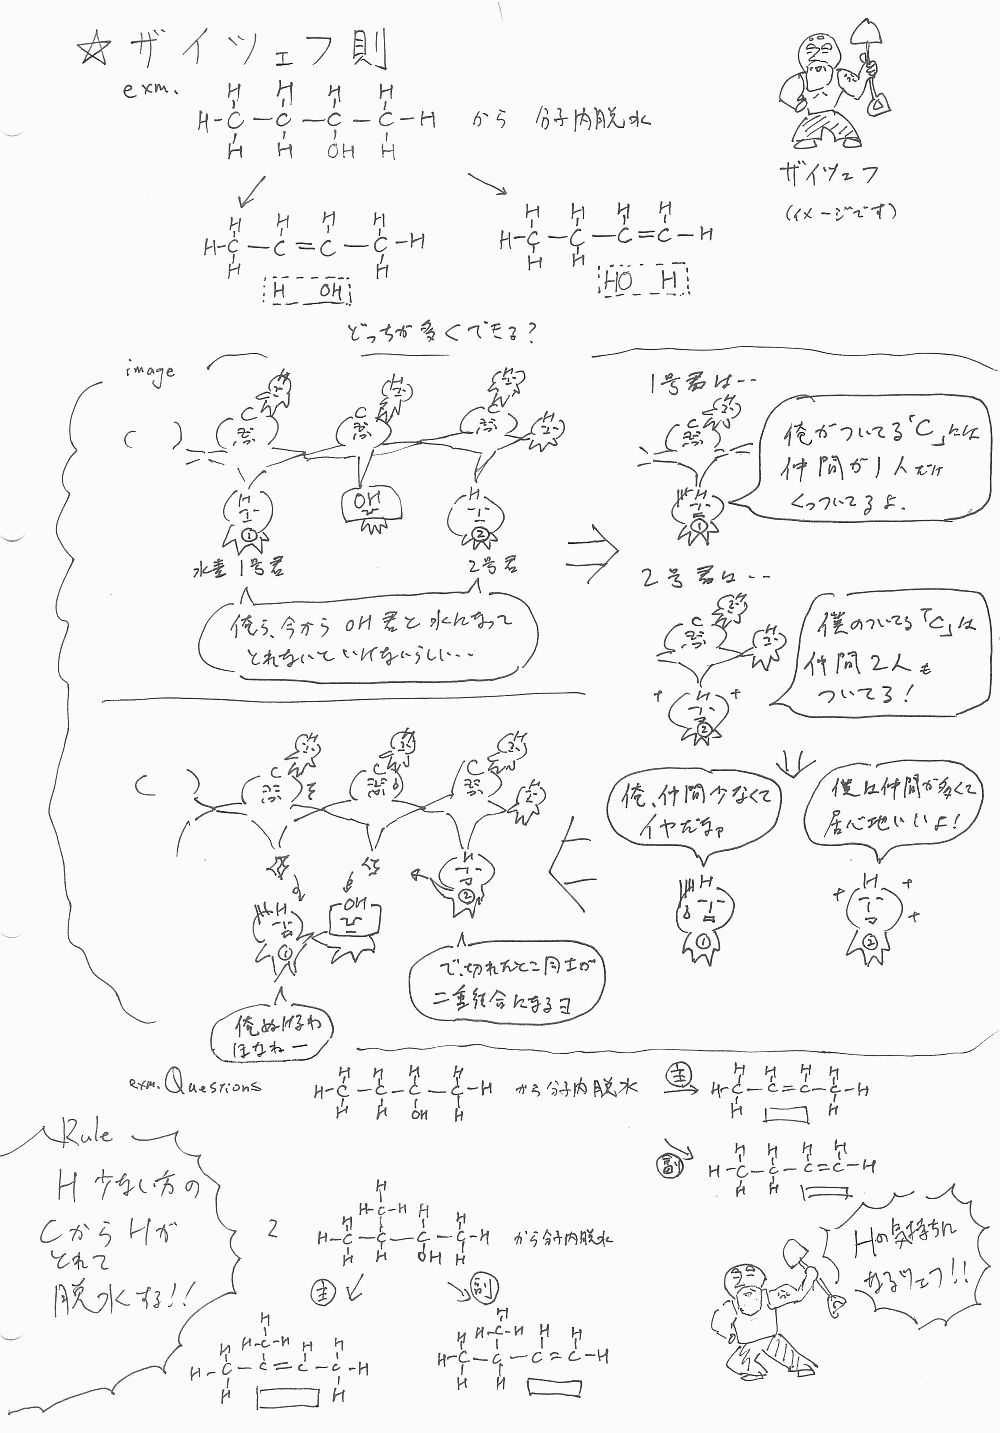 ☆ザイツェフ則
exm.
H H H H
H-C-C-C-C-H から 分子内脱水
H H OH H
ザイツェフ
(イメージです)
H H H H
H-C-C=C-C-H
H H
H OH
H H H H
H-C-C-C=C-H
H H
HO H
どっちが多くできる?
image
C C C C
H H H H
H OH H
① ②
水素1号君 2号君
俺ら、今から OH君と水になって
とれないといけないらしい…
1号君は…
H
C
H
①
俺がついてる「C」には
仲間が1人だけ
くっついてるよ.
2号君は…
H
C H
H
②
僕のついてる「C」は
仲間2人も
ついてる!
俺、仲間少なくて
イヤだなァ
H
①
僕は仲間が多くて
居心地いいよ!
H
②
C C C C
H H H H
H OH H
① ②
俺ぬけるわ
ほなねー
で、切れたとこ同士が
二重結合になるヨ
exm. Questions
H H H H
H-C-C-C-C-H から分子内脱水
H H OH H
主
H H H H
H-C-C=C-C-H
H H
副
H H H H
H-C-C-C=C-H
H H
Rule
H 少ない方の
CからHが
とれて
脱水する!!
2
H
H-C-H
H H H
H-C-C-C-C-H から分子内脱水
H H OH H
主
H
H-C-H
H H H
H-C-C=C-C-H
H H
副
H
H-C-H
H H H
H-C-C-C=C-H
H H
Hの気持ちに
なるツェフ!!